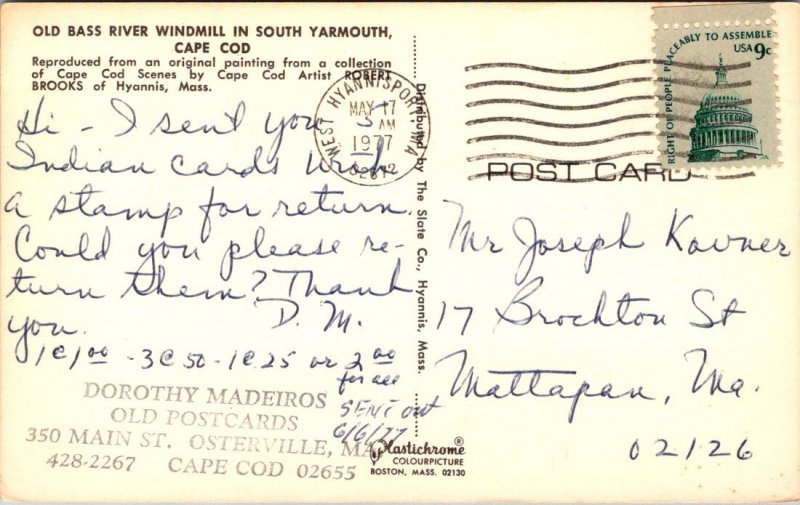 OLD BASS RIVER WINDMILL IN SOUTH YARMOUTH,
CAPE COD
Reproduced from an original painting from a collection
of Cape Cod Scenes by Cape Cod Artist ROBERT
BROOKS of Hyannis, Mass.
Hi - I sent you 5
Indian cards with
a stamp for return.
Could you please re-
turn them? Thank
you. D. M.
1@1.00 - 3@50 - 1@.25 or 2.00
for all
SENT out
6/6/77
DOROTHY MADEIROS
OLD POSTCARDS
350 MAIN ST. OSTERVILLE, MA
428-2267 CAPE COD 02655
Distributed by The Slate Co., Hyannis, Mass.
WEST HYANNISPORT, MA
MAY 17
AM
1977
02672
RIGHT OF PEOPLE PEACEABLY TO ASSEMBLE
USA 9c
POST CARD
Mr Joseph Kovner
17 Brockton St
Mattapan, Ma.
02126
Plastichrome®
COLOURPICTURE
BOSTON, MASS. 02130